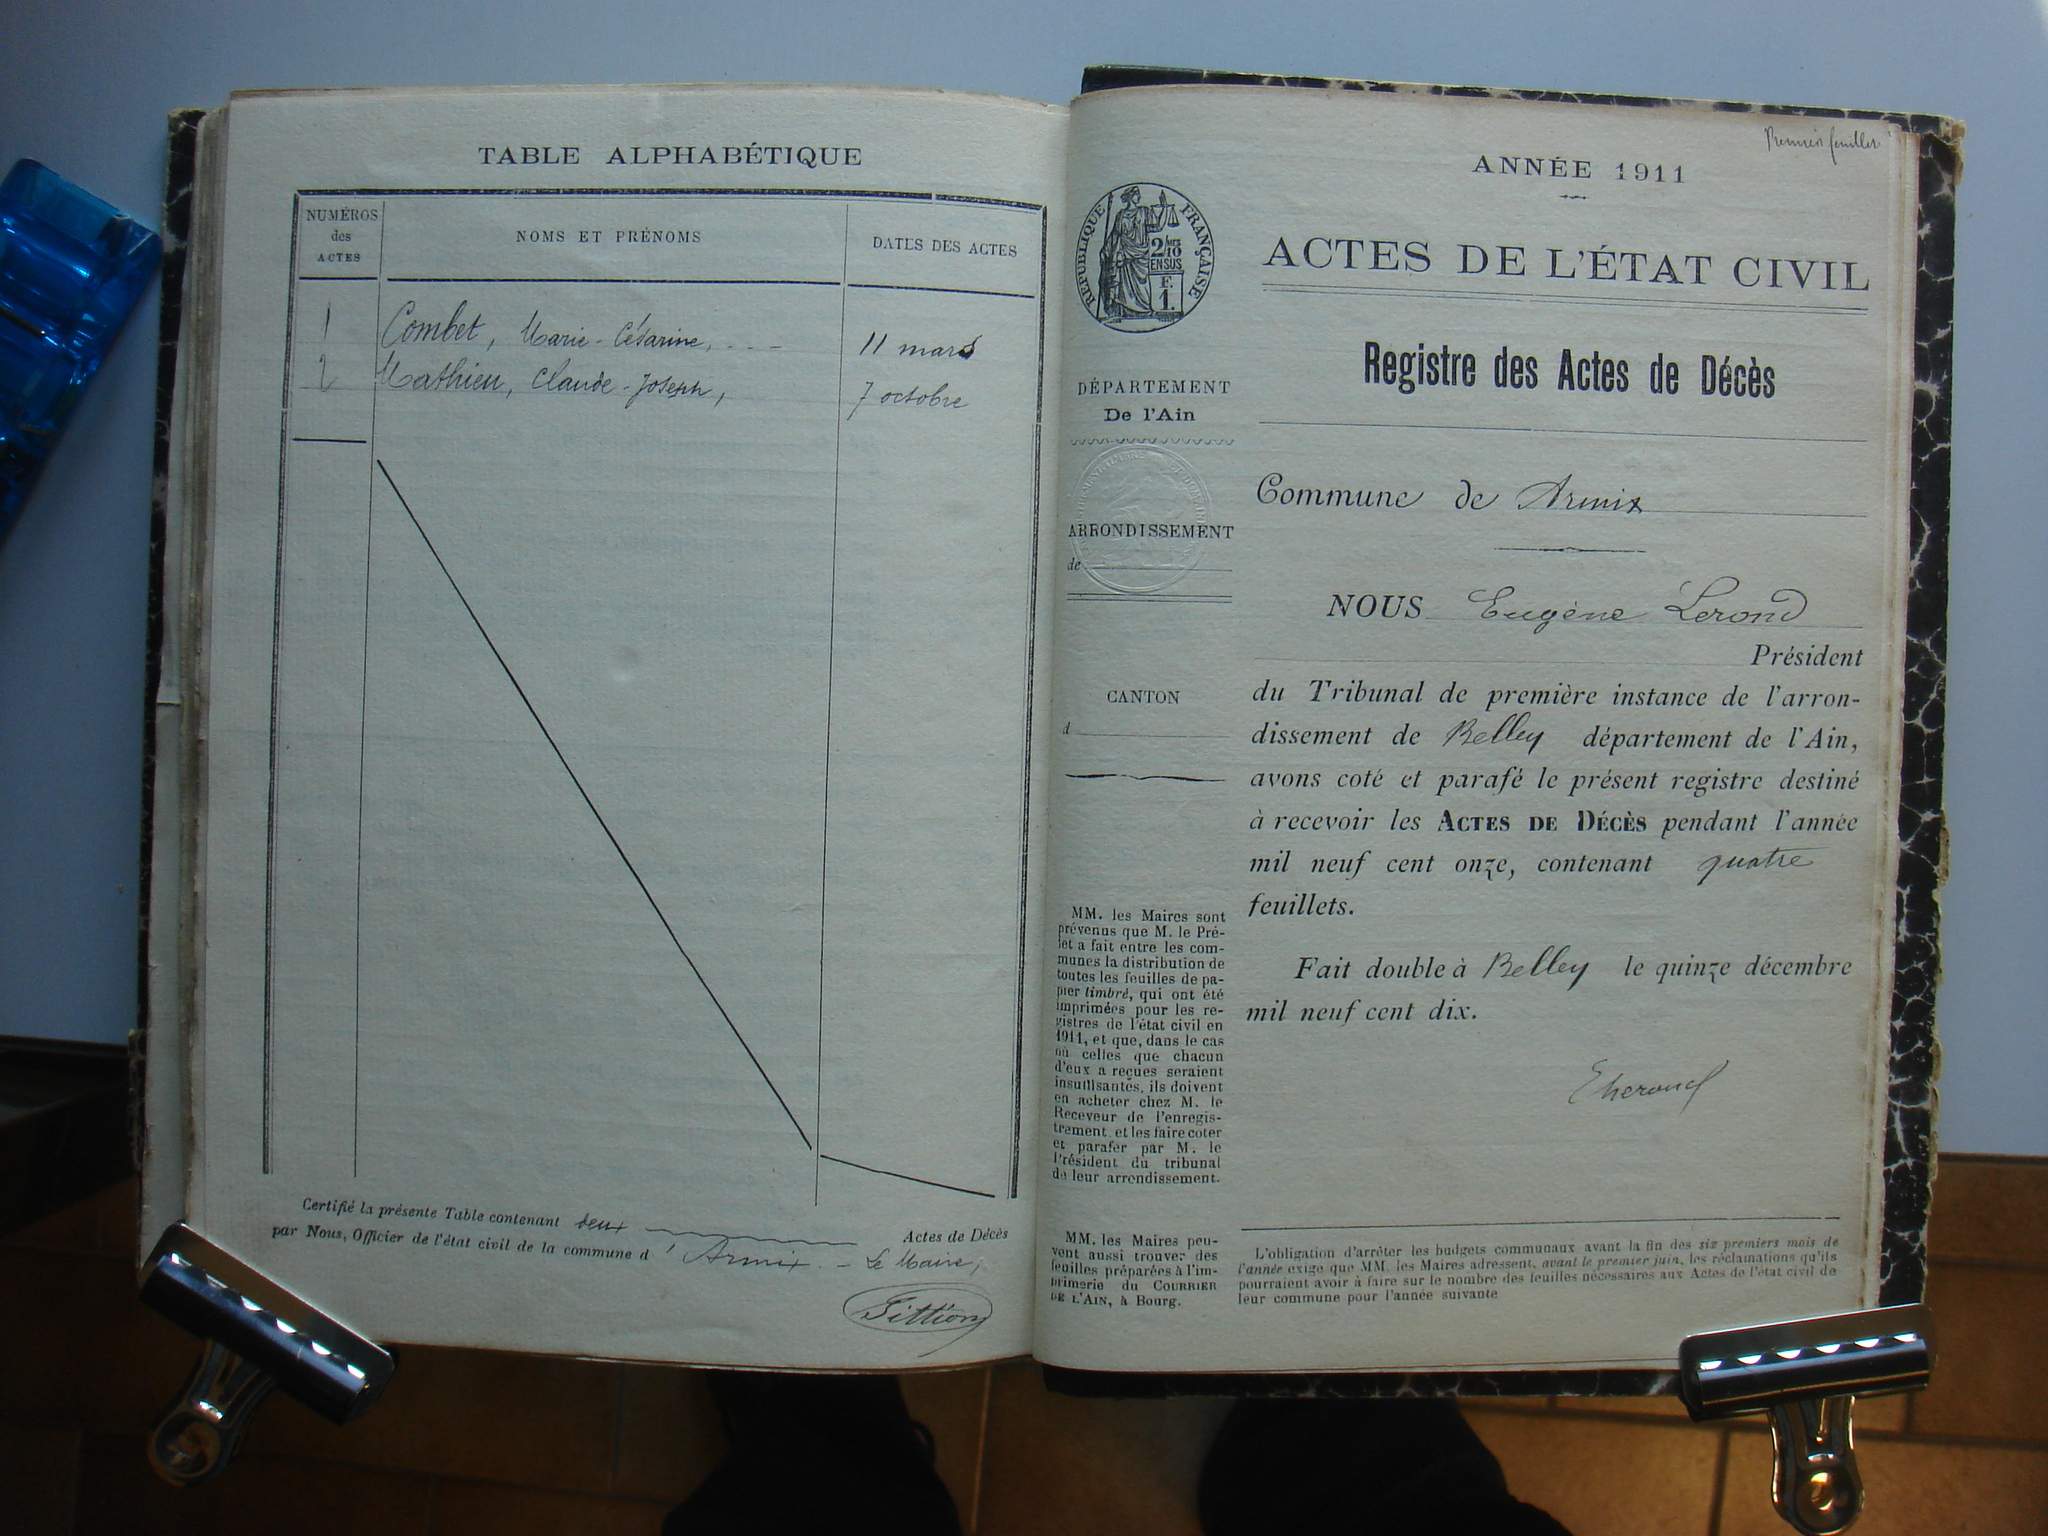 TABLE ALPHABÉTIQUE
NUMÉROS
des
ACTES
NOMS ET PRÉNOMS
DATES DES ACTES
1 Combet, Marie-Césarine, 11 mars
2 Mathieu, Claude-Joseph, 7 octobre
Certifié la présente Table contenant deux Actes de Décès
par Nous, Officier de l'état civil de la commune d'Armix. - Le Maire,
Premier feuillet
ANNÉE 1911
ACTES DE L'ÉTAT CIVIL
RÉPUBLIQUE FRANÇAISE
2/10
EN SUS
F.
1.
Registre des Actes de Décès
DÉPARTEMENT
De l'Ain
ARRONDISSEMENT
de
CANTON
d
MM. les Maires sont
prévenus que M. le Pré-
fet a fait entre les com-
munes la distribution de
toutes les feuilles de pa-
pier timbré, qui ont été
imprimées pour les re-
gistres de l'état civil en
1911, et que, dans le cas
où celles que chacun
d'eux a reçues seraient
insuffisantes, ils doivent
en acheter chez M. le
Receveur de l'enregis-
trement et les faire coter
et parafer par M. le
Président du tribunal
de leur arrondissement.
MM. les Maires peu-
vent aussi trouver des
feuilles préparées à l'im-
primerie du COURRIER
DE L'AIN, à Bourg.
Commune de Armix
NOUS Eugène Lerond
Président
du Tribunal de première instance de l'arron-
dissement de Belley département de l'Ain,
avons coté et parafé le présent registre destiné
à recevoir les ACTES DE DÉCÈS pendant l'année
mil neuf cent onze, contenant quatre
feuillets.
Fait double à Belley le quinze décembre
mil neuf cent dix.
L'obligation d'arrêter les budgets communaux avant la fin des six premiers mois de
l'année exige que MM. les Maires adressent, avant le premier juin, les réclamations qu'ils
pourraient avoir à faire sur le nombre des feuilles nécessaires aux Actes de l'état civil de
leur commune pour l'année suivante